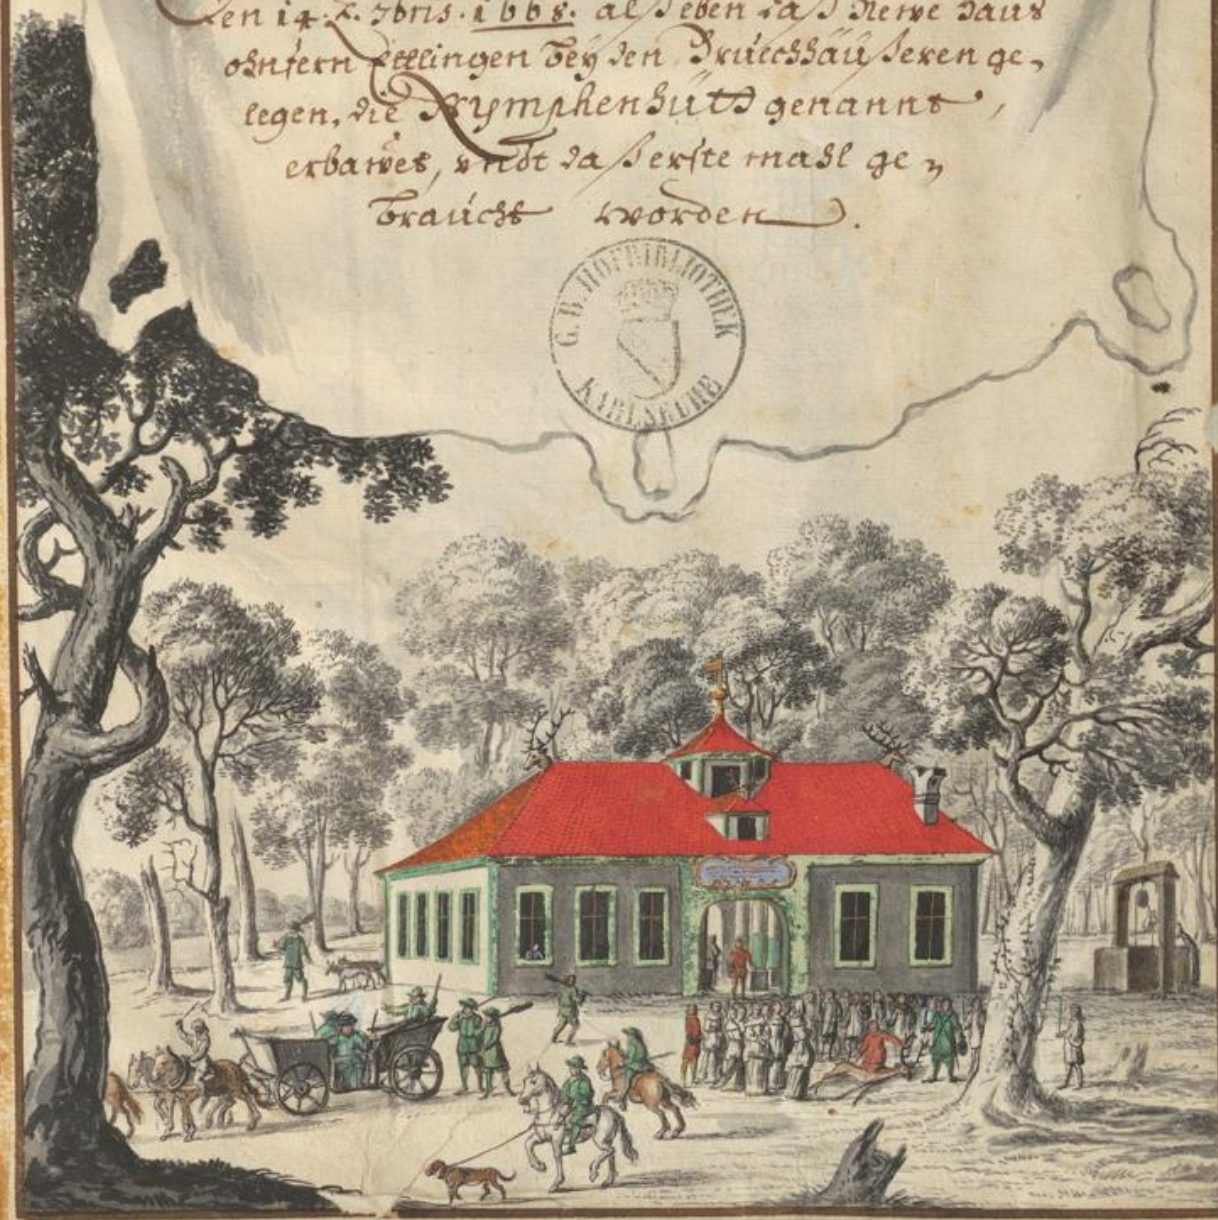 den 14. 7bris. 1668. alß eben daß Newe Haus
ohnfern Ettlingen bey den Brüchhäußeren ge-
legen, die Nymphenhütt genannt,
erbawet, vndt daß erste mahl ge-
braücht worden.
G. B. HOFBIBLIOTHEK
KARLSRUHE